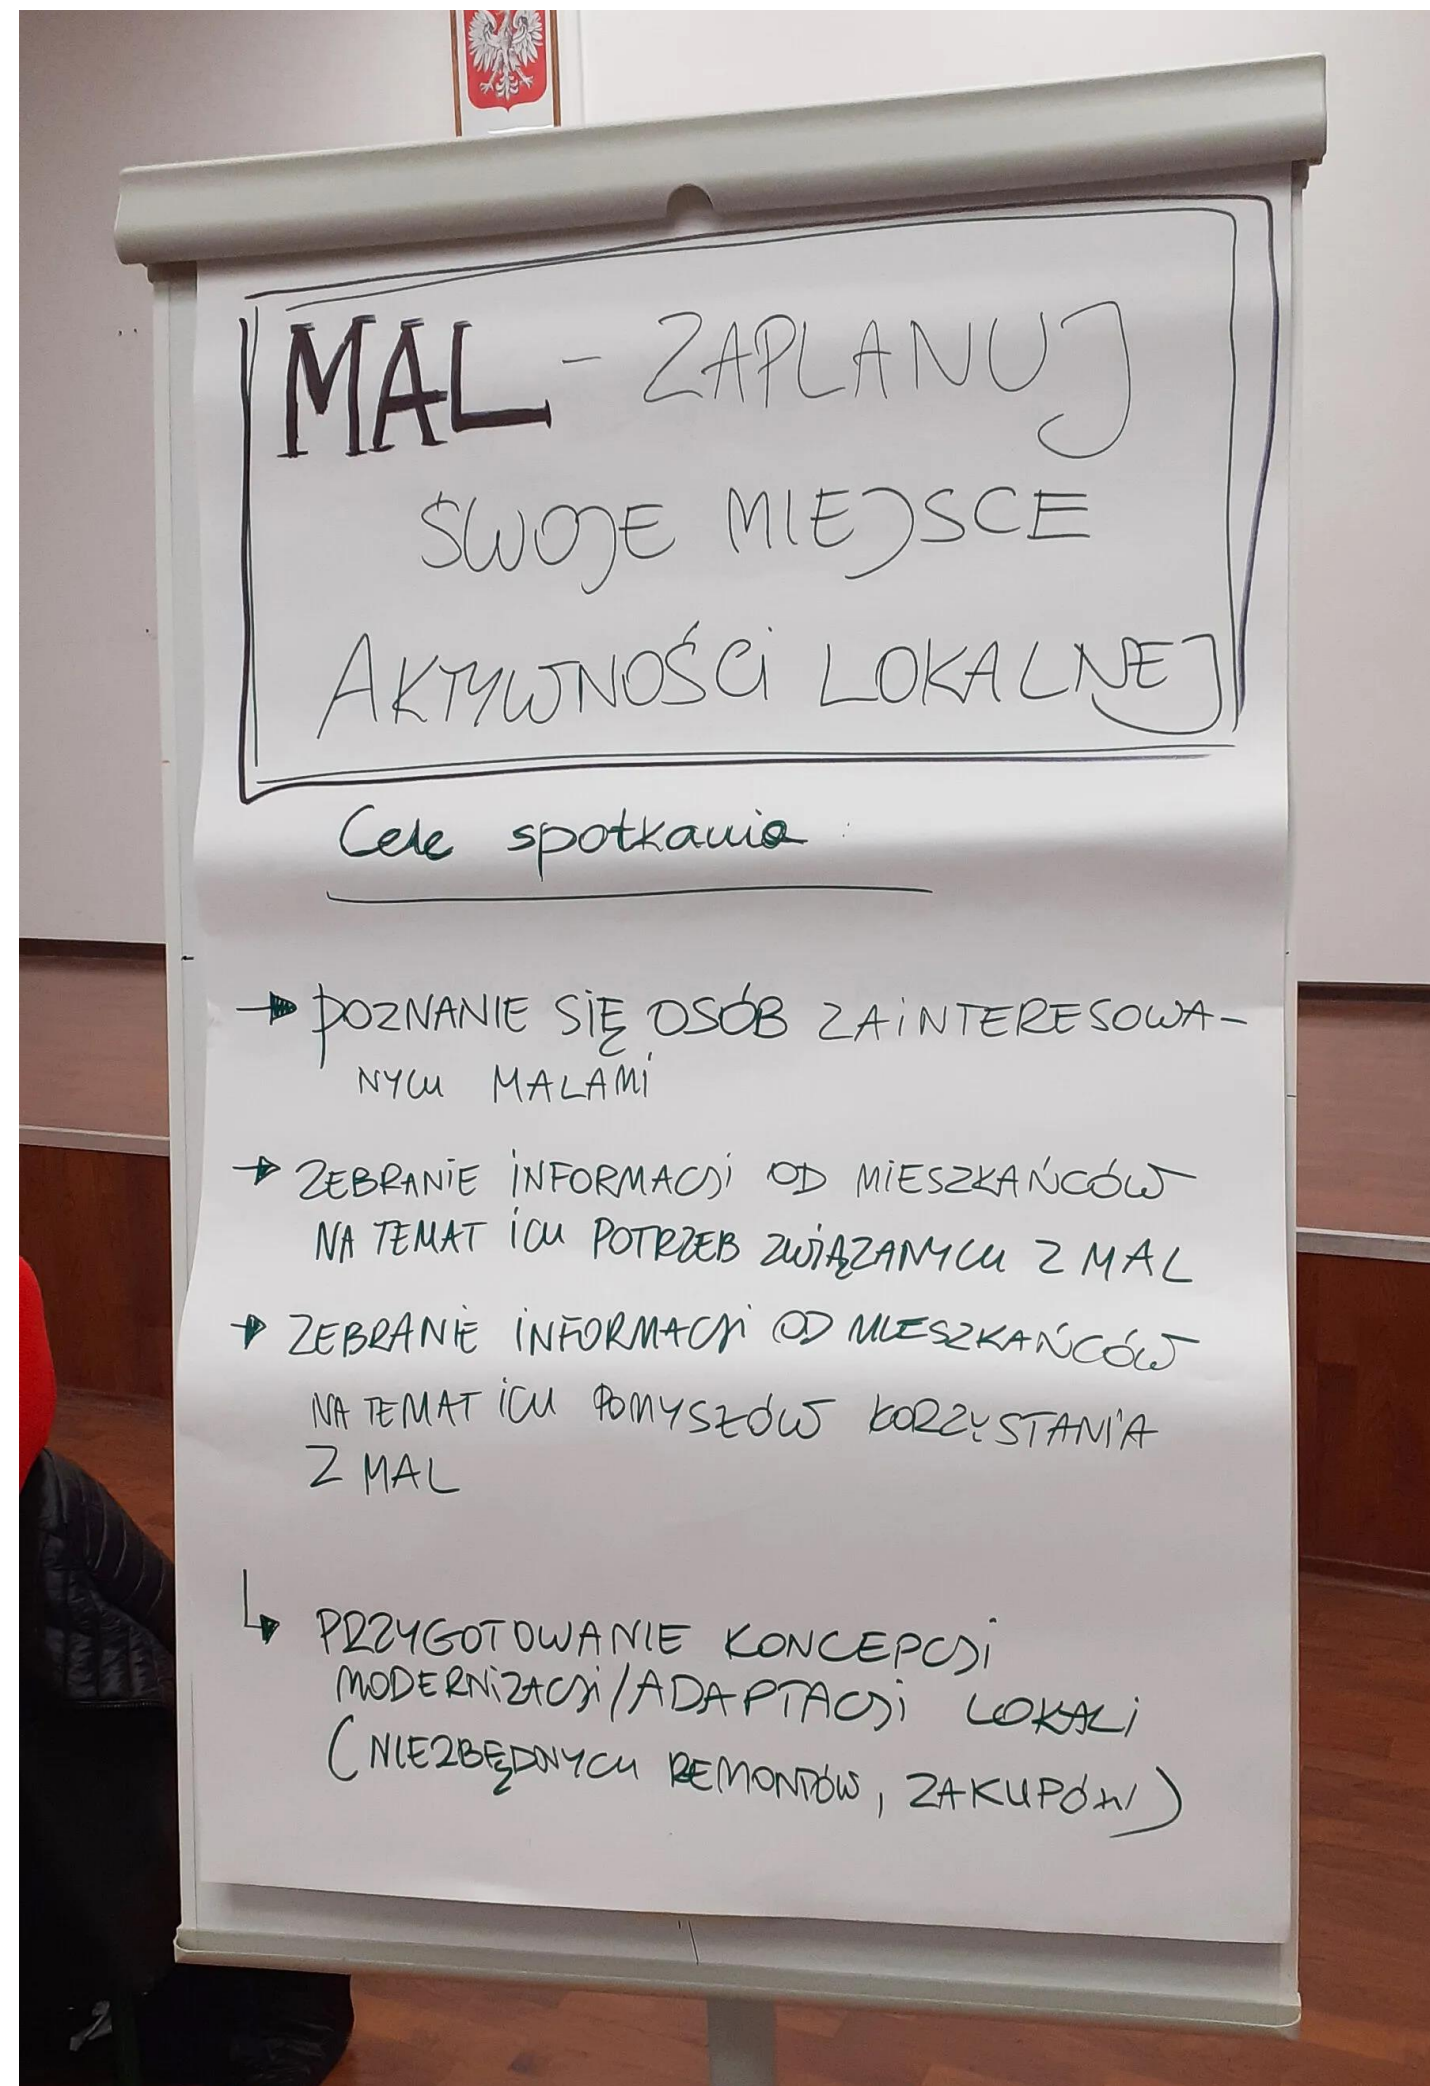 MAL - ZAPLANUJ
SWOJE MIEJSCE
AKTYWNOŚCI LOKALNEJ
Cele spotkania:
→ POZNANIE SIĘ OSÓB ZAINTERESOWA-
NYCH MALAMI
→ ZEBRANIE INFORMACJI OD MIESZKAŃCÓW
NA TEMAT ICH POTRZEB ZWIĄZANYCH Z MAL
→ ZEBRANIE INFORMACJI OD MIESZKAŃCÓW
NA TEMAT ICH POMYSŁÓW KORZYSTANIA
Z MAL
↳ PRZYGOTOWANIE KONCEPCJI
MODERNIZACJI/ADAPTACJI LOKALI
(NIEZBĘDNYCH REMONTÓW, ZAKUPÓW)